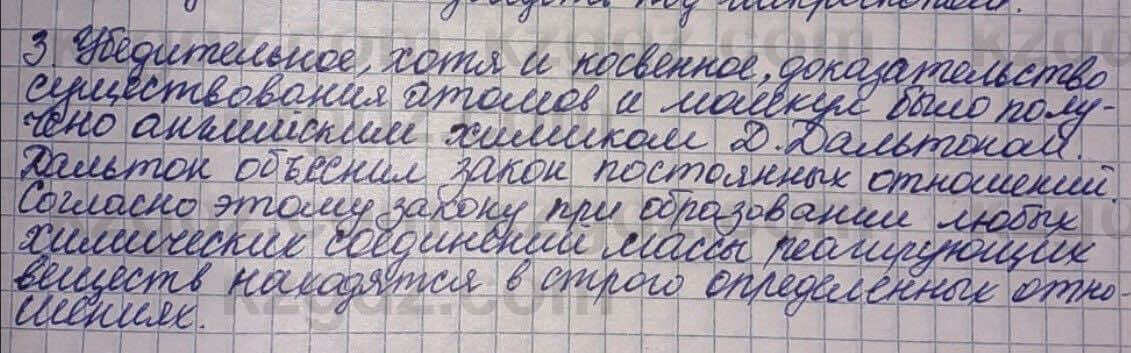 3. Убедительное, хотя и косвенное, доказательство
существования атомов и молекул было полу-
чено английским химиком Д. Дальтоном.
Дальтон объеснил закон постоянных отношений.
Согласно этому закону при образовании любых
химических соединений массы реагирующих
веществ находятся в строго определенных отно-
шениях.